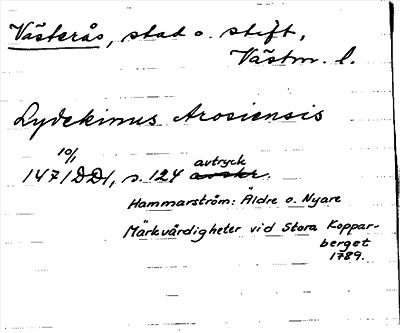 Västerås, stad o. stift,
Västm. l.
Lydekinus Arosiensis
10/1
1471 DD1, s. 124 avskr.
avtryck
Hammarström: Äldre o. Nyare
Märkvärdigheter vid Stora Kopparberget
1789.